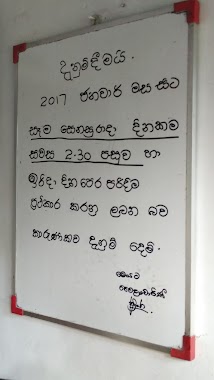 දැනුම්දීමයි.
2017 ජනවාරි මස සිට
සෑම සෙනසුරාදා දිනකම
සවස 2-30 පසුව හා
ඉරිදා දින පෙර පරිදිම
ප්‍රතිකාර කරනු ලබන බව
කාරුණිකව දැනුම් දෙමි.
මෙයට